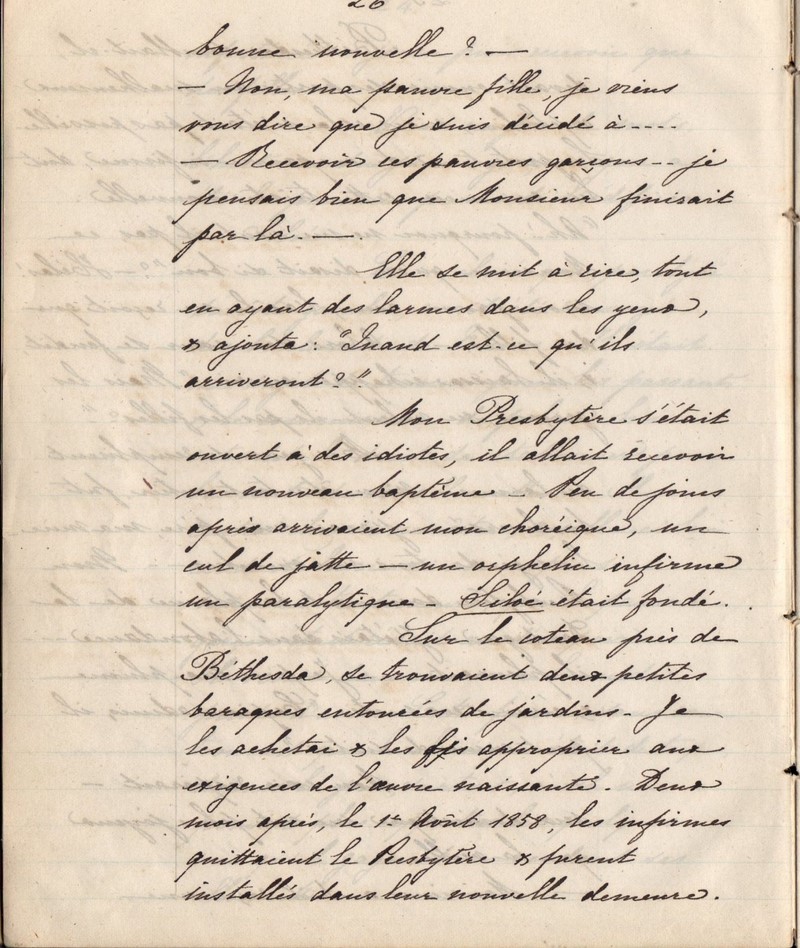 26
bonne nouvelle ? —
— Non, ma pauvre fille, je viens
vous dire que je suis décidé à ....
— Recevoir ces pauvres garçons .. je
pensais bien que Monsieur finirait
par là. —
Elle se mit à rire, tout
en ayant des larmes dans les yeux,
& ajouta : "Quand est-ce qu'ils
arriveront ? ".
Mon Presbytère s'était
ouvert à des idiotes, il allait recevoir
un nouveau baptême - Peu de jours
après arrivaient mon choréique, un
cul de jatte — un orphelin infirme
un paralytique - Siloé était fondé.
Sur le coteau près de
Béthesda, se trouvaient deux petites
baraques entourées de jardins - Je
les achetai & les fis approprier aux
exigences de l'œuvre naissante. Deux
mois après, le 1er Août 1858, les infirmes
quittaient le Presbytère & furent
installés dans leur nouvelle demeure.